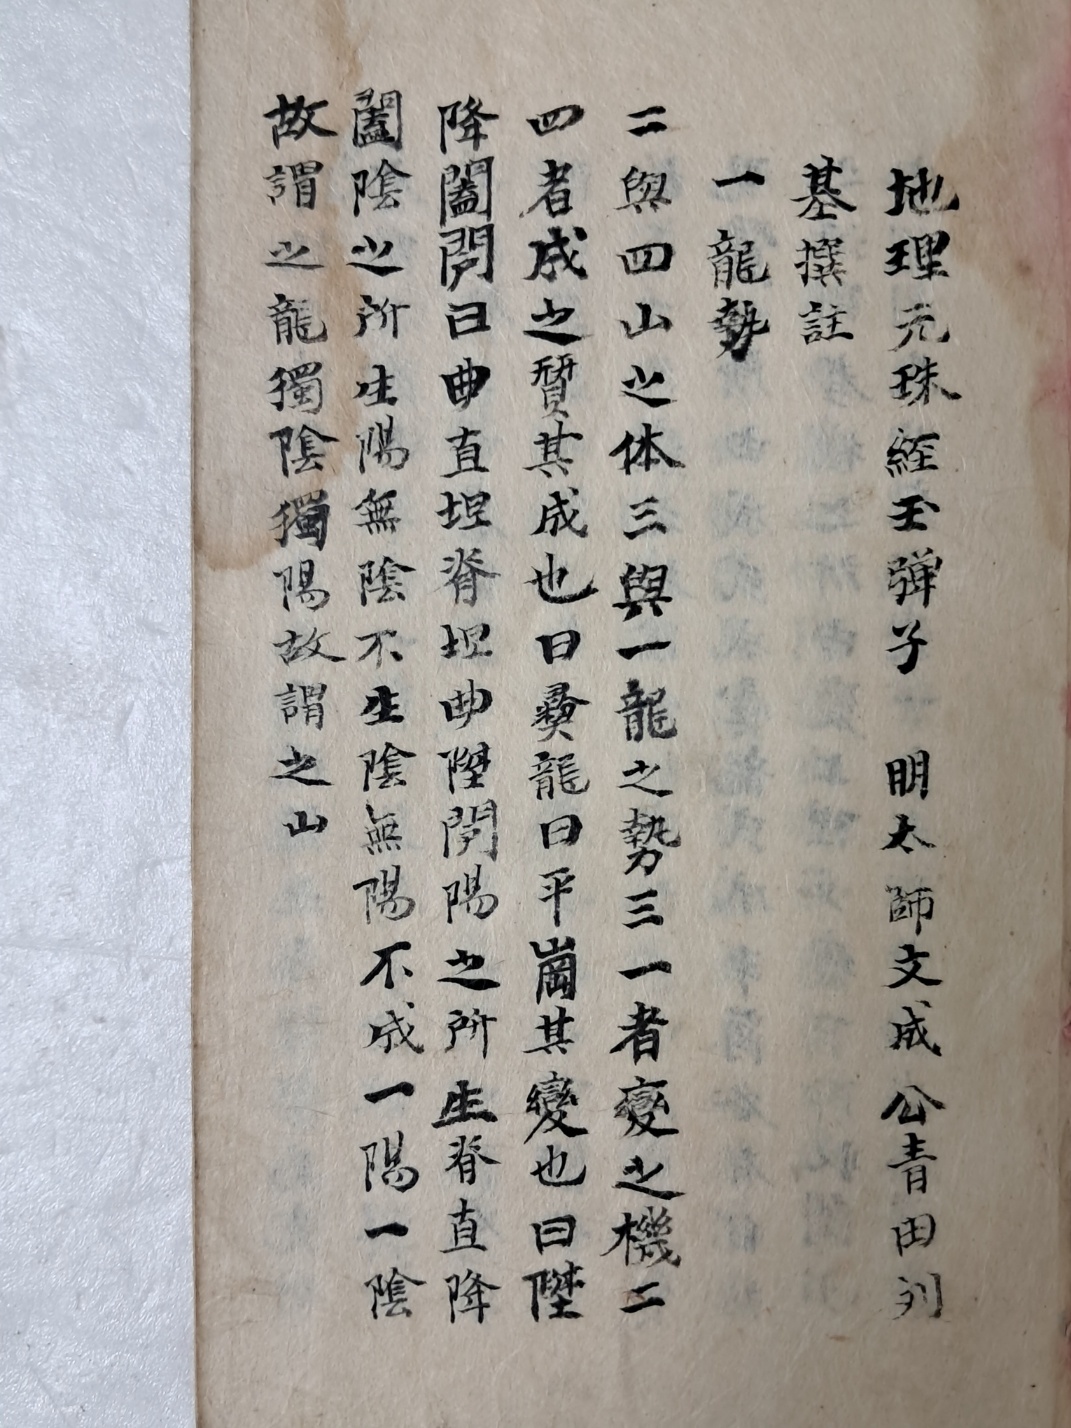 地理元珠經玉彈子　明太師文成公青田刘
基撰註
一龍勢
二與四山之体三與一龍之勢三一者變之機二
四者成之質其成也曰彛龍曰平崗其變也曰陞
降闔閉曰曲直坦脊坦曲陞閉陽之所生脊直降
闔陰之所生陽無陰不生陰無陽不成一陽一陰
故謂之龍獨陰獨陽故謂之山